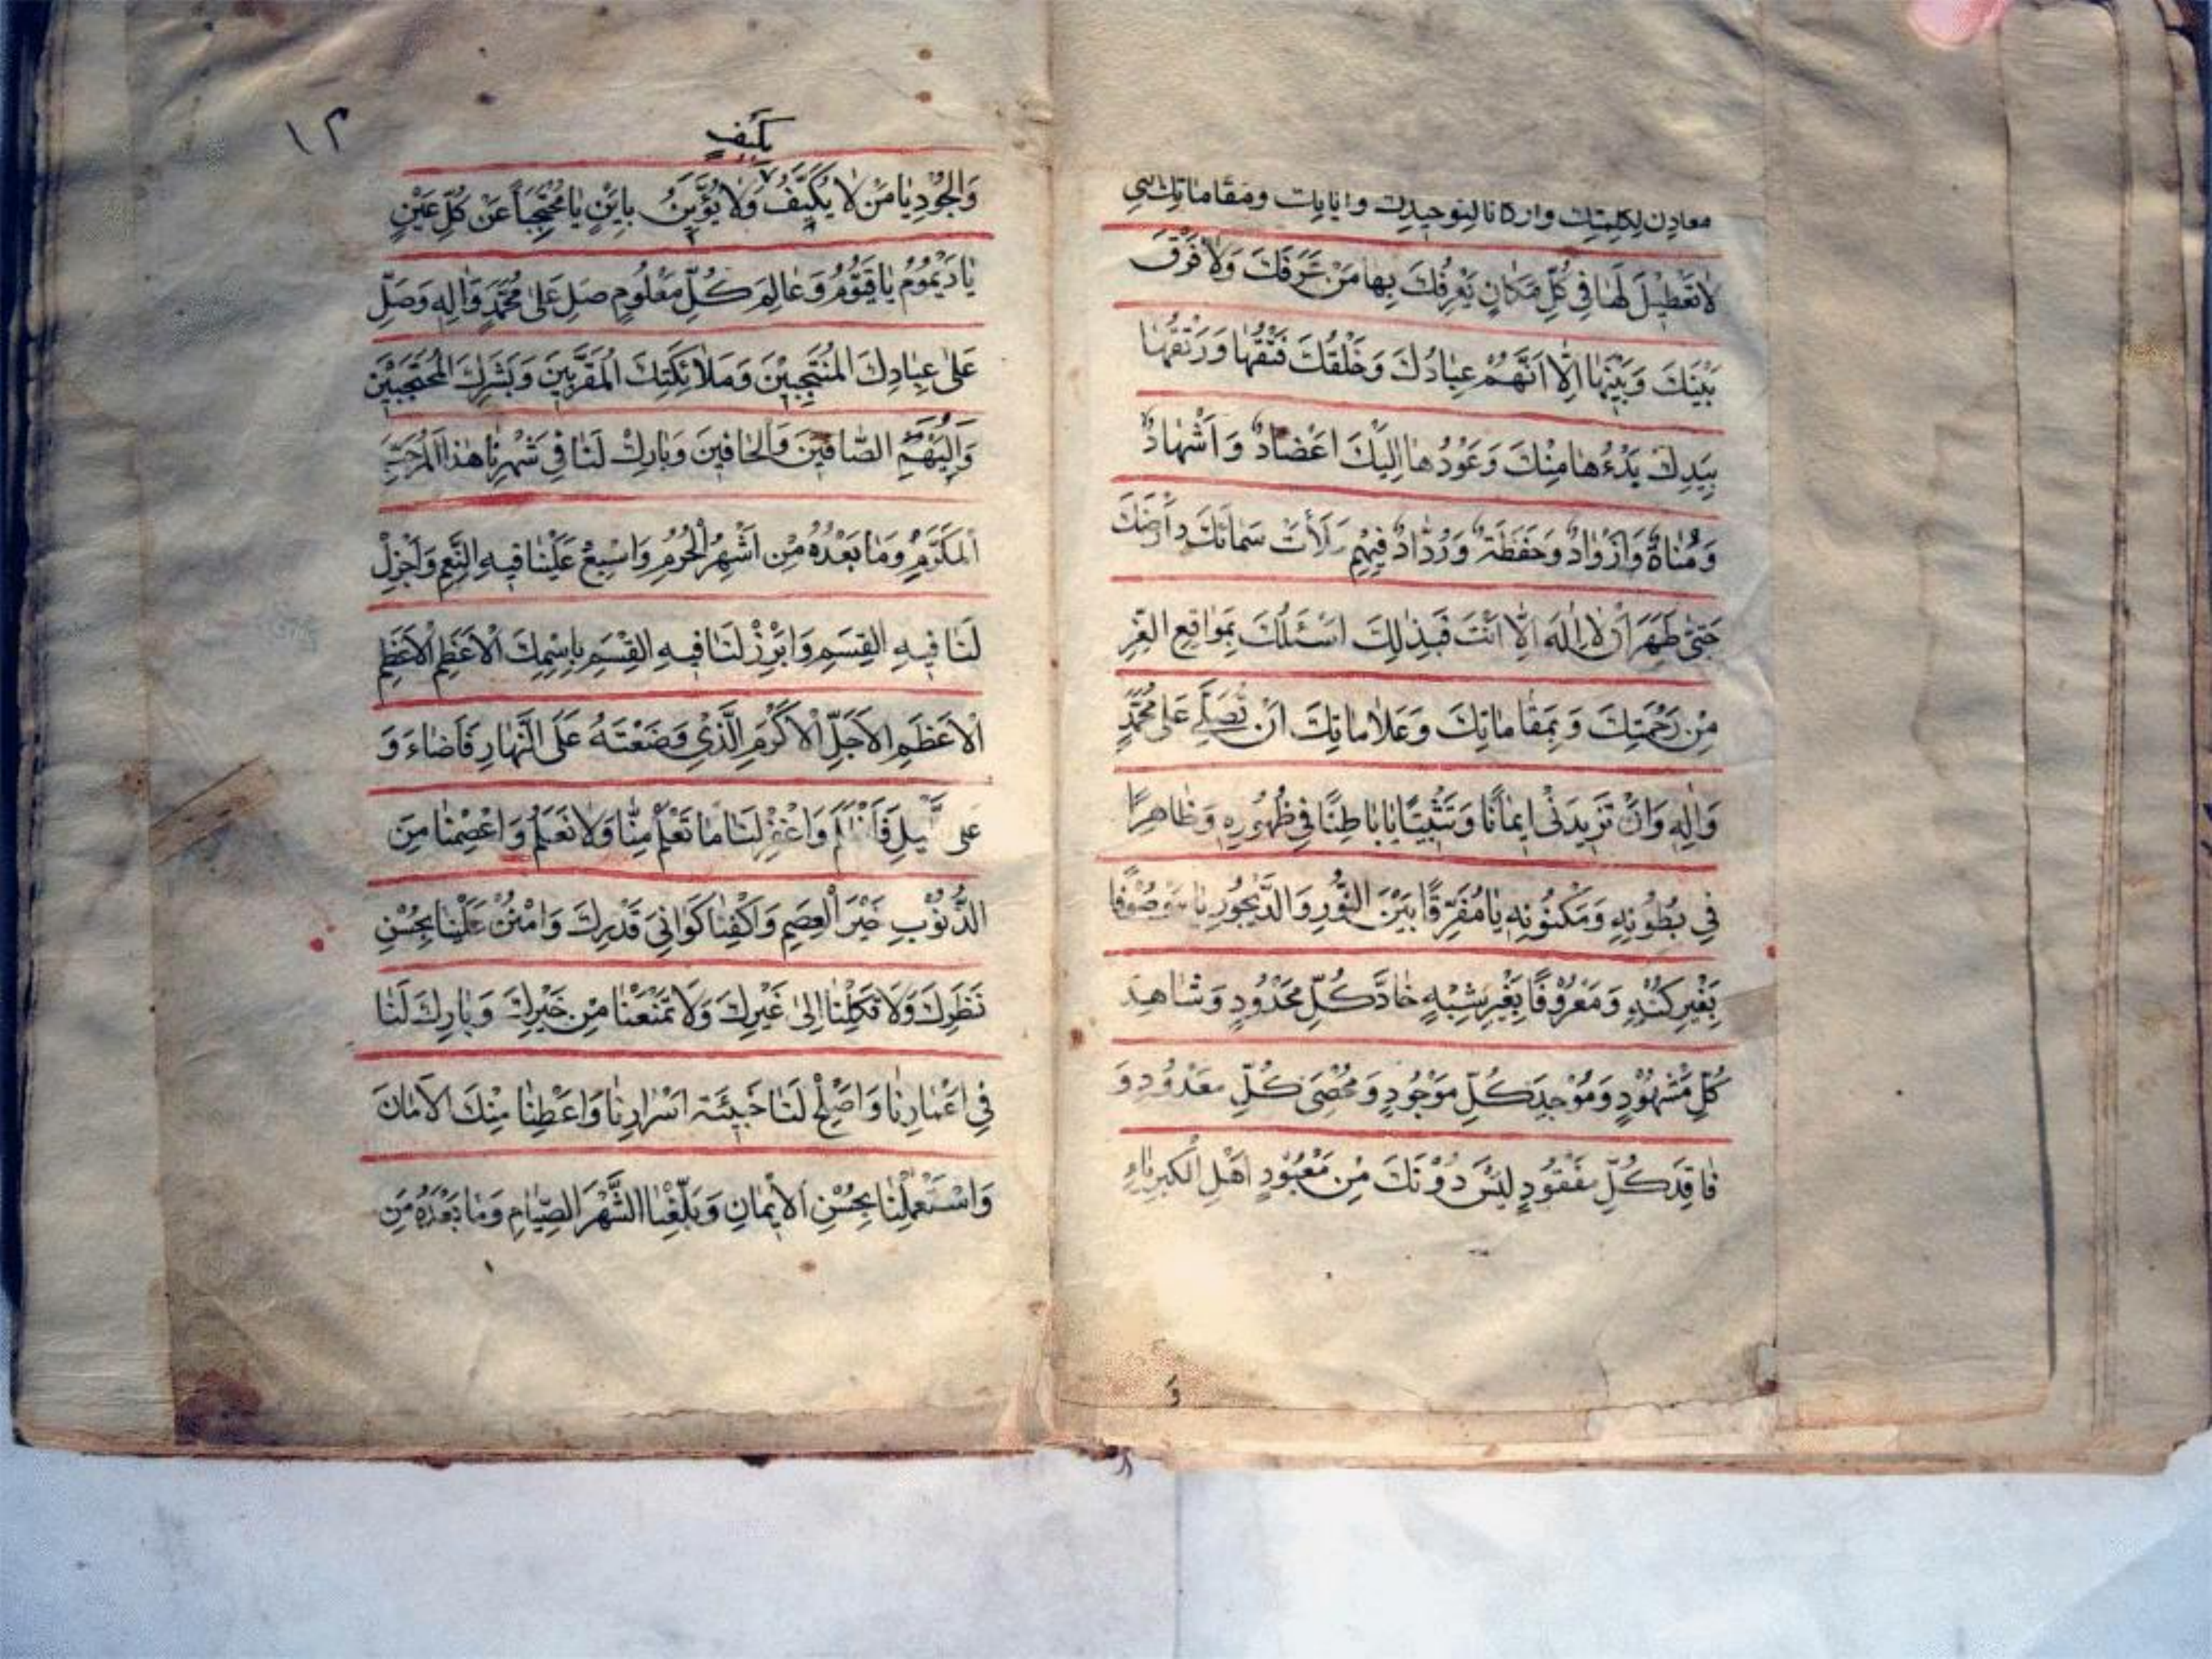 معادن لكلمتك واركانا لتوحيدك واياتك ومقاماتك التي
لا تَعْطِيلَ لَهَا فِي كُلِّ مَكَانٍ يَعْرِفُكَ بِهَا مَنْ عَرَفَكَ وَلَا فَرْقَ
بَيْنَكَ وَبَيْنَهَا اِلَّا اَنَّهُمْ عِبَادُكَ وَخَلْقُكَ فَتْقُهَا وَرَتْقُهَا
بِيَدِكَ بَدْءُهَا مِنْكَ وَعَوْدُهَا اِلَيْكَ اَعْضَادٌ وَ اَشْهَادٌ
وَمُنَاةٌ وَاَزْوَادٌ وَحَفَظَةٌ وَرُوَّادٌ فَبِهِمْ مَلَأْتَ سَمَائَكَ وَاَرْضَكَ
حَتّٰى ظَهَرَ اَنْ لَا اِلٰهَ اِلَّا اَنْتَ فَبِذٰلِكَ اَسْئَلُكَ بِمَوَاقِعِ الْعِزِّ
مِنْ رَحْمَتِكَ وَ بِمَقَامَاتِكَ وَعَلَامَاتِكَ اَنْ تُصَلِّيَ عَلٰى مُحَمَّدٍ
وَاٰلِهِ وَاَنْ تَزِيدَنِي اِيمَانًا وَتَثْبِيتًا يَا بَاطِنًا فِي ظُهُورِهِ وَظَاهِرًا
فِي بُطُونِهِ وَمَكْنُونِهِ يَا مُفَرِّقًا بَيْنَ النُّورِ وَالدَّيْجُورِ يَا مَوْصُوفًا
بِغَيْرِ كُنْهٍ وَمَعْرُوفًا بِغَيْرِ شِبْهٍ حَادَّ كُلِّ مَحْدُودٍ وَشَاهِدَ
كُلِّ مَشْهُودٍ وَمُوْجِدَ كُلِّ مَوْجُودٍ وَمُحْصِيَ كُلِّ مَعْدُودٍ وَ
فَاقِدَ كُلِّ مَفْقُودٍ لَيْسَ دُوْنَكَ مِنْ مَعْبُوْدٍ اَهْلِ الْكِبْرِيَاءِ
وَ
١٢
بكيف
وَالْجُوْدِ يَا مَنْ لَا يُكَيَّفُ وَلَا يُؤَيَّنُ بِاَيْنٍ يَا مُحْتَجِبًا عَنْ كُلِّ عَيْنٍ
يَا دَيْمُوْمُ يَا قَيُّوْمُ وَعَالِمَ كُلِّ مَعْلُوْمٍ صَلِّ عَلٰى مُحَمَّدٍ وَاٰلِهِ وَصَلِّ
عَلٰى عِبَادِكَ الْمُنْتَجَبِيْنَ وَمَلَائِكَتِكَ الْمُقَرَّبِيْنَ وَبَشَرِكَ الْمُحْتَجِبِيْنَ
وَالْبُهْمِ الصَّافِّيْنَ وَالْحَافِّيْنَ وَبَارِكْ لَنَا فِي شَهْرِنَا هٰذَا الْمُرَجَّبِ
الْمُكَرَّمِ وَمَا بَعْدَهُ مِنْ اَشْهُرِ الْحُرُمِ وَاَسْبِغْ عَلَيْنَا فِيهِ النِّعَمَ وَاَجْزِلْ
لَنَا فِيهِ الْقِسَمِ وَابْرِزْ لَنَا فِيهِ الْقِسَمِ بِاسْمِكَ الْاَعْظَمِ الْاَعْظَمِ
الْاَعْظَمِ الْاَجَلِّ الْاَكْرَمِ الَّذِي وَضَعْتَهُ عَلَى النَّهَارِ فَاَضَاءَ وَ
على الليلِ فَاَظْلَمَ وَاغْفِرْ لَنَا مَا تَعْلَمُ مِنَّا وَلَا نَعْلَمُ وَاعْصِمْنَا مِنَ
الذُّنُوْبِ خَيْرَ الْعِصَمِ وَاكْفِنَا كَوَافِيَ قَدَرِكَ وَامْنُنْ عَلَيْنَا بِحُسْنِ
نَظَرِكَ وَلَا تَكِلْنَا اِلٰى غَيْرِكَ وَلَا تَمْنَعْنَا مِنْ خَيْرِكَ وَبَارِكْ لَنَا
فِي اَعْمَارِنَا وَاَصْلِحْ لَنَا خَبِيْئَةَ اَسْرَارِنَا وَاَعْطِنَا مِنْكَ الْاَمَانَ
وَاسْتَعْمِلْنَا بِحُسْنِ الْاِيْمَانِ وَبَلِّغْنَا الشَّهْرَ الصِّيَامِ وَمَا بَعْدَهُ مِنَ